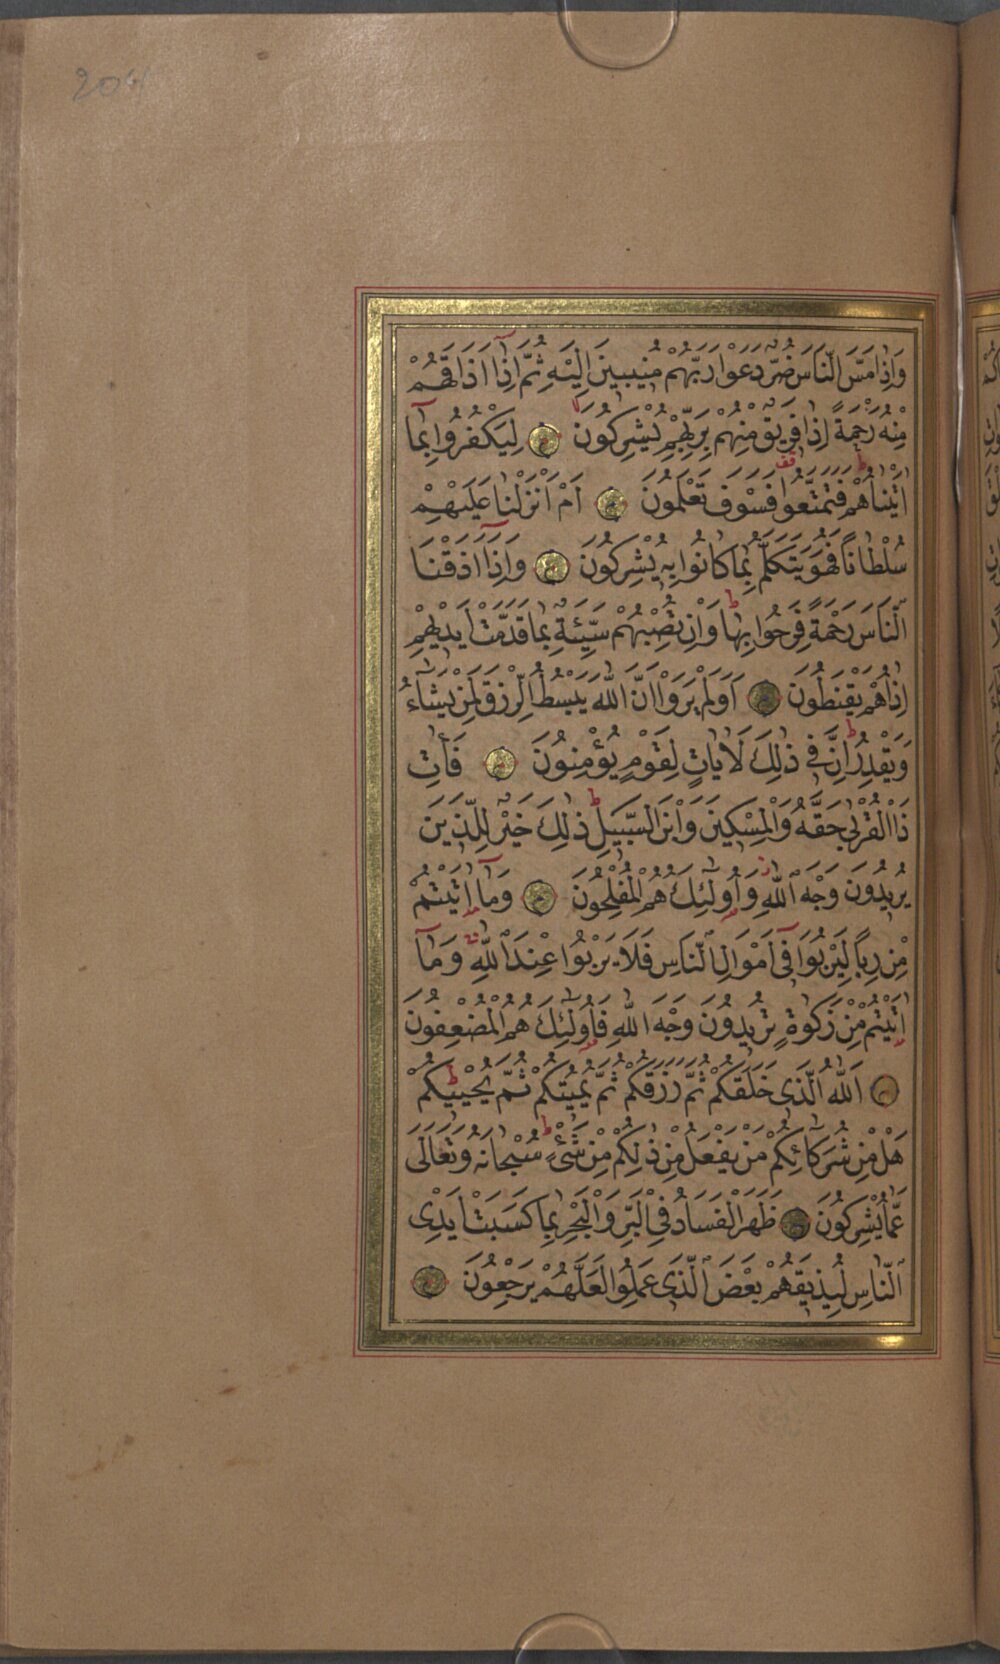 204
وَاِذَا مَسَّ النَّاسَ ضُرٌّ دَعَوْا رَبَّهُمْ مُنِيبِينَ اِلَيْهِ ثُمَّ اِذَٓا اَذَاقَهُمْ
مِنْهُ رَحْمَةً اِذَا فَرِيقٌ مِنْهُمْ بِرَبِّهِمْ يُشْرِكُونَ لِيَكْفُرُوا بِمَٓا
اٰتَيْنَاهُمْ فَتَمَتَّعُوا فَسَوْفَ تَعْلَمُونَ اَمْ اَنْزَلْنَا عَلَيْهِمْ
سُلْطَانًا فَهُوَ يَتَكَلَّمُ بِمَا كَانُوا بِهِ يُشْرِكُونَ وَاِذَٓا اَذَقْنَا
النَّاسَ رَحْمَةً فَرِحُوا بِهَا وَاِنْ تُصِبْهُمْ سَيِّئَةٌ بِمَا قَدَّمَتْ اَيْدِيهِمْ
اِذَا هُمْ يَقْنَطُونَ اَوَلَمْ يَرَوْا اَنَّ اللّٰهَ يَبْسُطُ الرِّزْقَ لِمَنْ يَشَٓاءُ
وَيَقْدِرُ اِنَّ فِي ذٰلِكَ لَاٰيَاتٍ لِقَوْمٍ يُؤْمِنُونَ فَاٰتِ
ذَا الْقُرْبٰى حَقَّهُ وَالْمِسْكِينَ وَابْنَ السَّبِيلِ ذٰلِكَ خَيْرٌ لِلَّذِينَ
يُرِيدُونَ وَجْهَ اللّٰهِ وَاُولٰٓئِكَ هُمُ الْمُفْلِحُونَ وَمَٓا اٰتَيْتُمْ
مِنْ رِبًا لِيَرْبُوَا فِٓي اَمْوَالِ النَّاسِ فَلَا يَرْبُوا عِنْدَ اللّٰهِ وَمَٓا
اٰتَيْتُمْ مِنْ زَكٰوةٍ تُرِيدُونَ وَجْهَ اللّٰهِ فَاُولٰٓئِكَ هُمُ الْمُضْعِفُونَ
اَللّٰهُ الَّذِي خَلَقَكُمْ ثُمَّ رَزَقَكُمْ ثُمَّ يُمِيتُكُمْ ثُمَّ يُحْيِيكُمْ
هَلْ مِنْ شُرَكَٓائِكُمْ مَنْ يَفْعَلُ مِنْ ذٰلِكُمْ مِنْ شَيْءٍ سُبْحَانَهُ وَتَعَالٰى
عَمَّا يُشْرِكُونَ ظَهَرَ الْفَسَادُ فِي الْبَرِّ وَالْبَحْرِ بِمَا كَسَبَتْ اَيْدِي
النَّاسِ لِيُذِيقَهُمْ بَعْضَ الَّذِي عَمِلُوا لَعَلَّهُمْ يَرْجِعُونَ